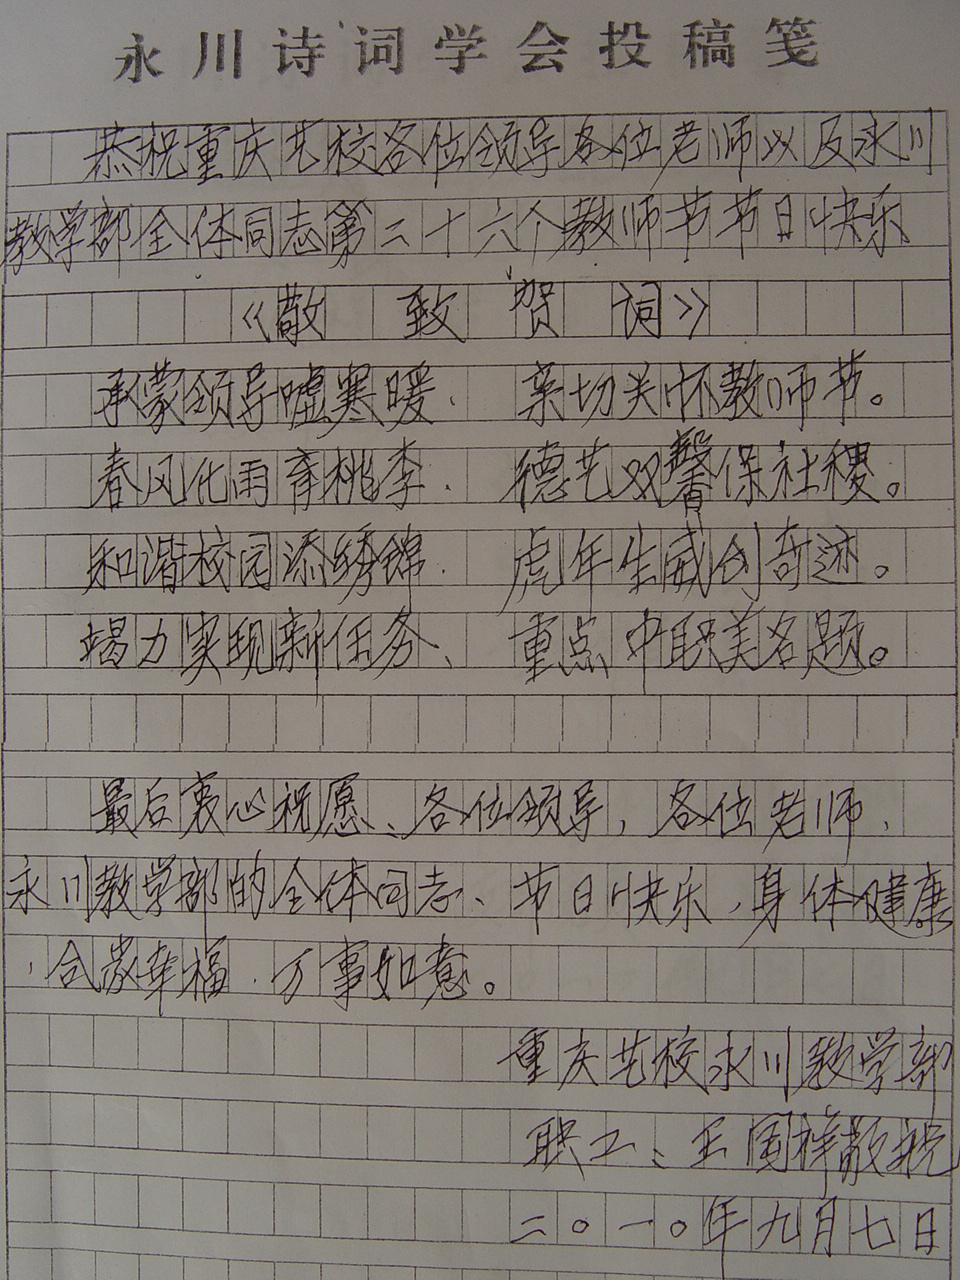 永川诗词学会投稿笺
恭祝重庆艺校各位领导各位老师以及永川
教学部全体同志第二十六个教师节节日快乐
《敬致贺词》
承蒙领导嘘寒暖. 亲切关怀教师节。
春风化雨育桃李. 德艺双馨保社稷。
和谐校园添绣锦. 虎年生威创奇迹。
竭力实现新任务、 重点中职美名题。
最后衷心祝愿、各位领导,各位老师、
永川教学部的全体同志、节日快乐,身体健康
,合家幸福.万事如意。
重庆艺校永川教学部
职工、王国祥敬祝
二〇一〇年九月七日